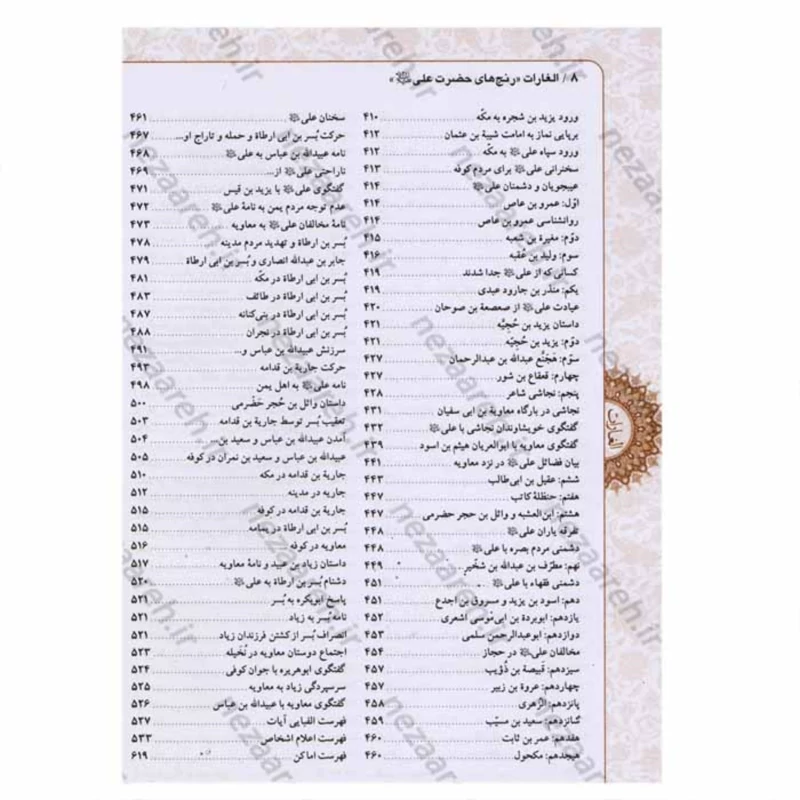 ۸ / الغارات «رنج‌های حضرت علی ﷷ»
ورود یزید بن شجره به مکّه ۴۱۰
برپایی نماز به امامت شیبة بن عثمان ۴۱۲
ورود سپاه علی به مکّه ۴۱۲
سخنرانی علی برای مردم کوفه ۴۱۳
عیبجویان و دشمنان علی ۴۱۴
اوّل: عمرو بن عاص ۴۱۴
روانشناسی عمرو بن عاص ۴۱۴
دوّم: مغیرة بن شعبه ۴۱۵
سوم: ولید بن عُقبه ۴۱۶
کسانی که از علی جدا شدند ۴۱۹
یکم: منذر بن جارود عبدی ۴۱۹
عیادت علی از صعصعة بن صوحان ۴۲۰
داستان یزید بن حُجیّه ۴۲۱
دوّم: یزید بن حُجیّه ۴۲۱
سوّم: هَجَنَّع عبدالله بن عبدالرحمان ۴۲۷
چهارم: قعقاع بن شور ۴۲۷
پنجم: نجاشی شاعر ۴۲۸
نجاشی در بارگاه معاویة بن ابی سفیان ۴۳۱
گفتگوی خویشاوندان نجاشی با علی ۴۳۲
گفتگوی معاویه با ابوالعریان هیثم بن اسود ۴۳۹
بیان فضائل علی در نزد معاویه ۴۴۱
ششم: عقیل بن ابی‌طالب ۴۴۳
هفتم: حنظلهٔ کاتب ۴۴۷
هشتم: ابن‌العشبه و وائل بن حجر حضرمی ۴۴۷
تفرقه یاران علی ۴۴۸
دشمنی مردم بصره با علی ۴۴۸
نهم: مطرّف بن عبدالله بن شخّیر ۴۴۹
دشمنی فقهاء با علی ۴۵۱
دهم: اسود بن یزید و مسروق بن اجدع ۴۵۱
یازدهم: ابوبردة بن ابی‌مُوسی اشعری ۴۵۲
دوازدهم: ابوعبدالرحمن سلمی ۴۵۳
مخالفان علی در حجاز ۴۵۴
سیزدهم: قَبیصة بن ذُؤیب ۴۵۷
چهاردهم: عروة بن زبیر ۴۵۷
پانزدهم: الزُهری ۴۵۸
شانزدهم: سعید بن مسیّب ۴۵۹
هفدهم: عمر بن ثابت ۴۶۰
هیجدهم: مکحول ۴۶۰
سخنان علی ۴۶۱
حرکت بُسر بن ابی ارطاة و حمله و تاراج او... ۴۶۷
نامه عبیدالله بن عباس به علی ۴۶۸
ناراحتی علی از... ۴۶۹
گفتگوی علی با یزید بن قیس ۴۷۱
عدم توجه مردم یمن به نامهٔ علی ۴۷۲
نامهٔ مخالفان علی به معاویه ۴۷۳
بُسر بن ابی ارطاة و تهدید مردم مدینه ۴۷۸
جابر بن عبدالله انصاری و بسر بن ابی ارطاة ۴۷۹
بُسر بن ابی ارطاة در مکّه ۴۸۱
بُسر بن ابی ارطاة در طائف ۴۸۳
بُسر بن ابی ارطاة در بنی‌کنانه ۴۸۷
بُسر بن ابی ارطاة در نجران ۴۸۸
سرزنش عبیدالله بن عباس و...
حرکت جاریة بن قدامه ۴۹۳
نامه علی به اهل یمن ۴۹۸
داستان وائل بن حُجر حَضْرمی ۵۰۰
تعقیب بُسر توسط جاریة بن قدامه ۵۰۳
آمدن عبیدالله بن عباس و سعید بن... ۵۰۴
عبیدالله بن عباس و سعید بن نمران در کوفه ۵۰۵
جاریة بن قدامه در مکه ۵۱۰
جاریه در مدینه ۵۱۲
جاریة بن قدامه در کوفه ۵۱۵
بُسر بن ابی ارطاة در یمامه ۵۱۵
معاویه در کوفه ۵۱۶
داستان زیاد بن عبید و نامهٔ معاویه ۵۱۷
دشنام بُسر بن ارطاة به علی ۵۲۰
پاسخ ابوبکره به بُسر ۵۲۱
نامهٔ بُسر به زیاد ۵۲۱
انصراف بُسر از کشتن فرزندان زیاد ۵۲۱
اجتماع دوستان معاویه در نُخَیله ۵۲۳
گفتگوی ابوهریره با جوان کوفی ۵۲۴
سرسپردگی زیاد به معاویه ۵۲۵
گفتگوی معاویه با عبیدالله بن عباس ۵۲۶
فهرست الفبایی آیات ۵۲۷
فهرست اعلام اشخاص ۵۳۳
فهرست اماکن ۶۱۹
الغارات
nezaareh.ir